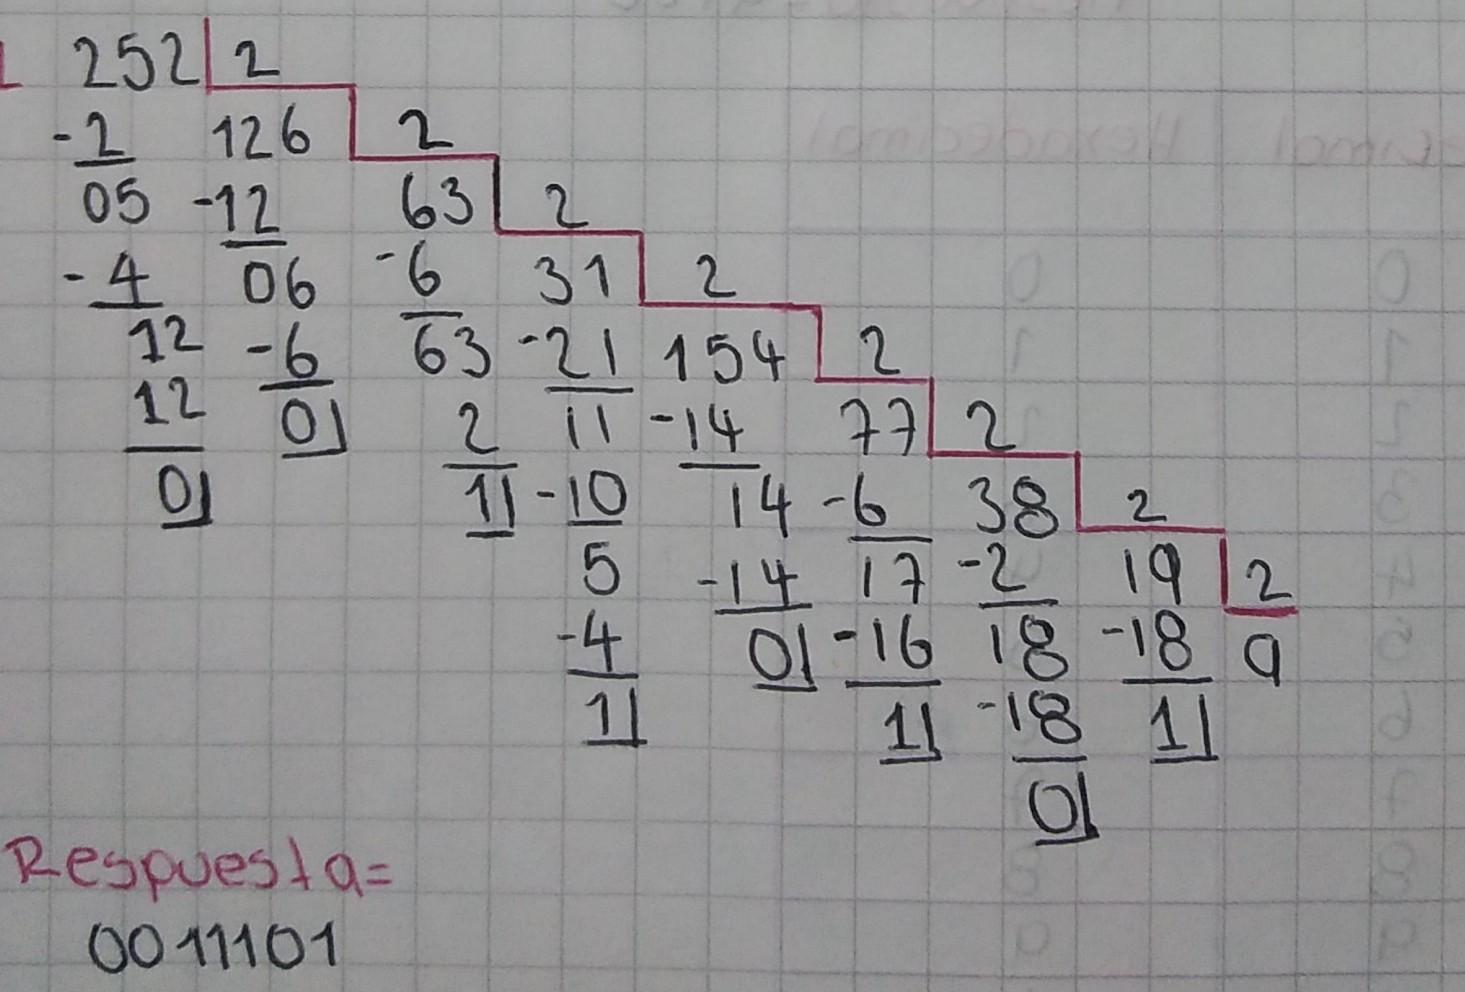 252 2
-2 126 2
05 -12 63 2
-4 06 -6 31 2
12 -6 63 -21 154 2
12 0 2 11 -14 77 2
0 1 -10 14 -6 38 2
5 -14 17 -2 19 2
-4 0 -16 18 -18 9
1 1 -18 1
0
Respuesta=
0011101